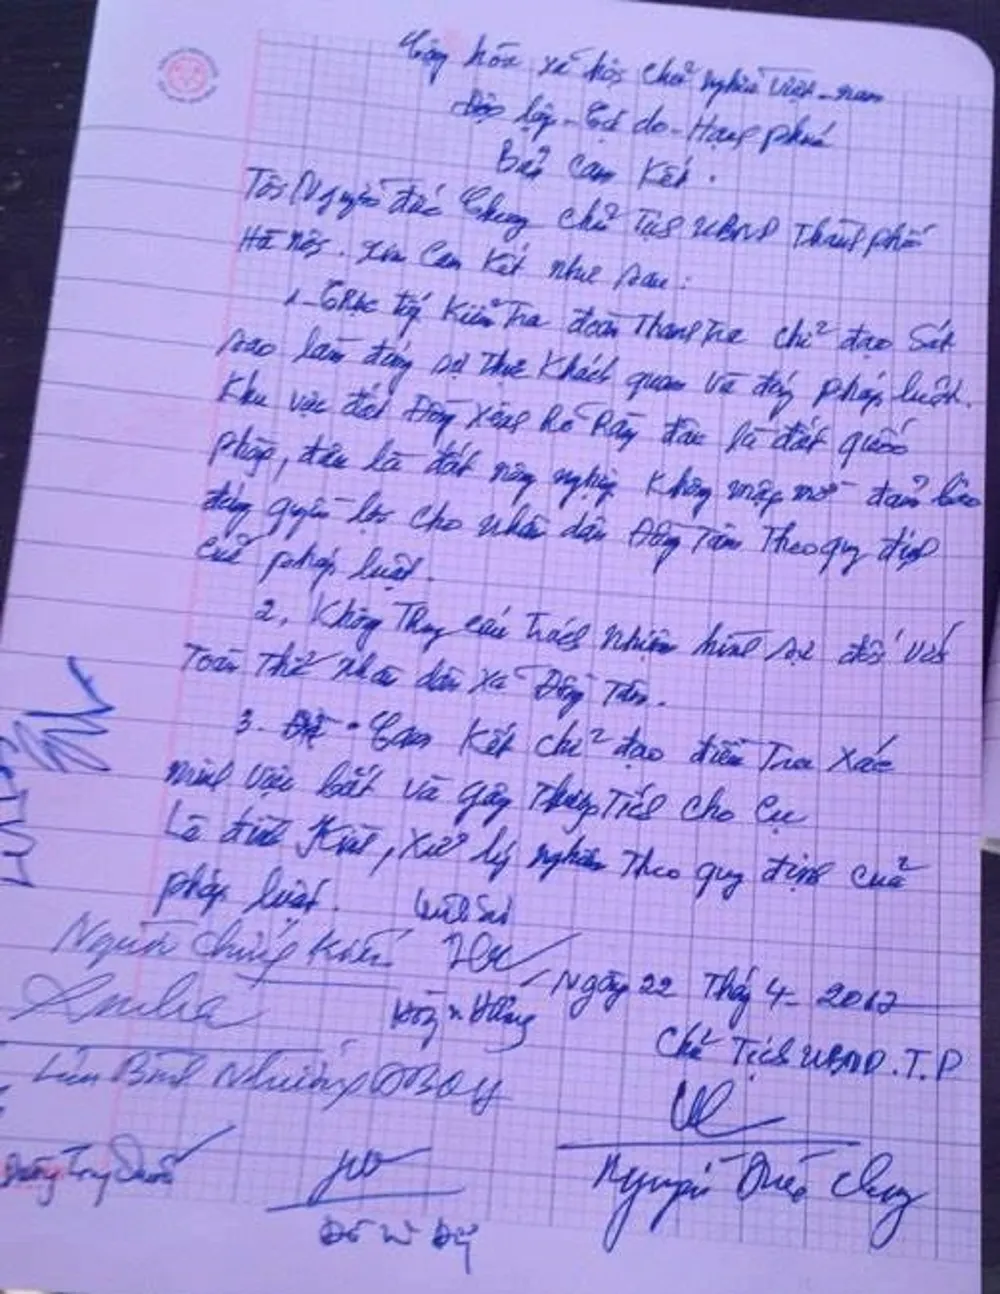 Cộng hòa xã hội chủ nghĩa Việt-nam
Độc lập - Tự do - Hạnh phúc
Bản Cam Kết.
Tôi Nguyễn đức Chung chủ Tịch UBND Thành phố
Hà nội. xin Cam Kết như sau:
1- Trực tiếp Kiểm Tra đoàn Thanh Tra chỉ đạo Sát
sao làm đúng sự Thực Khách quan và đúng pháp luật.
Khu vực đất Đồng Xênh Rõ Ràng đâu là đất quốc
phòng, đâu là đất nông nghiệp Không mập mờ đảm bảo
đúng quyền lợi cho nhân dân Đồng Tâm Theo quy định
của pháp luật.
2, Không Truy cứu trách nhiệm hình sự đối với
Toàn Thể nhân dân xã Đồng Tâm.
3. Cam Kết chỉ đạo điều Tra Xác
minh việc bắt và gây Thương Tích cho Cụ
Lê đình Kình, xử lý nghiêm Theo quy định của
pháp luật.
Người chứng kiến
Ngày 22 Tháng 4- 2017
Chủ Tịch UBND.T.P
Lưu Bình Nhưỡng ĐBQH
Dương Trung Quốc
Nguyễn Đức Chung